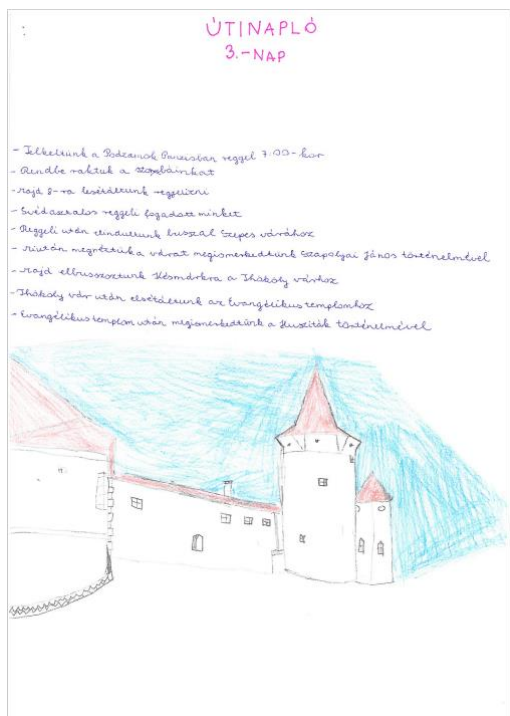 ÚTINAPLÓ
3.-NAP
- Felkeltünk a Podzamok Panziósban reggel 7:00-kor
- Rendbe raktuk a szobáinkat
- Majd 8-ra lesétáltunk reggelizni
- Svédasztalos reggeli fogadott minket
- Reggeli után elindultunk busszal Szepes várához
- Miután megnéztük a várat megismerkedtünk Szapolyai János történelmével
- Majd elbuszoztunk Késmárkra a Thököly várhoz
- Thököly vár után elsétáltunk az Evangélikus templomhoz
- Evangélikus templom után megismerkedtünk a Husziták történelmével